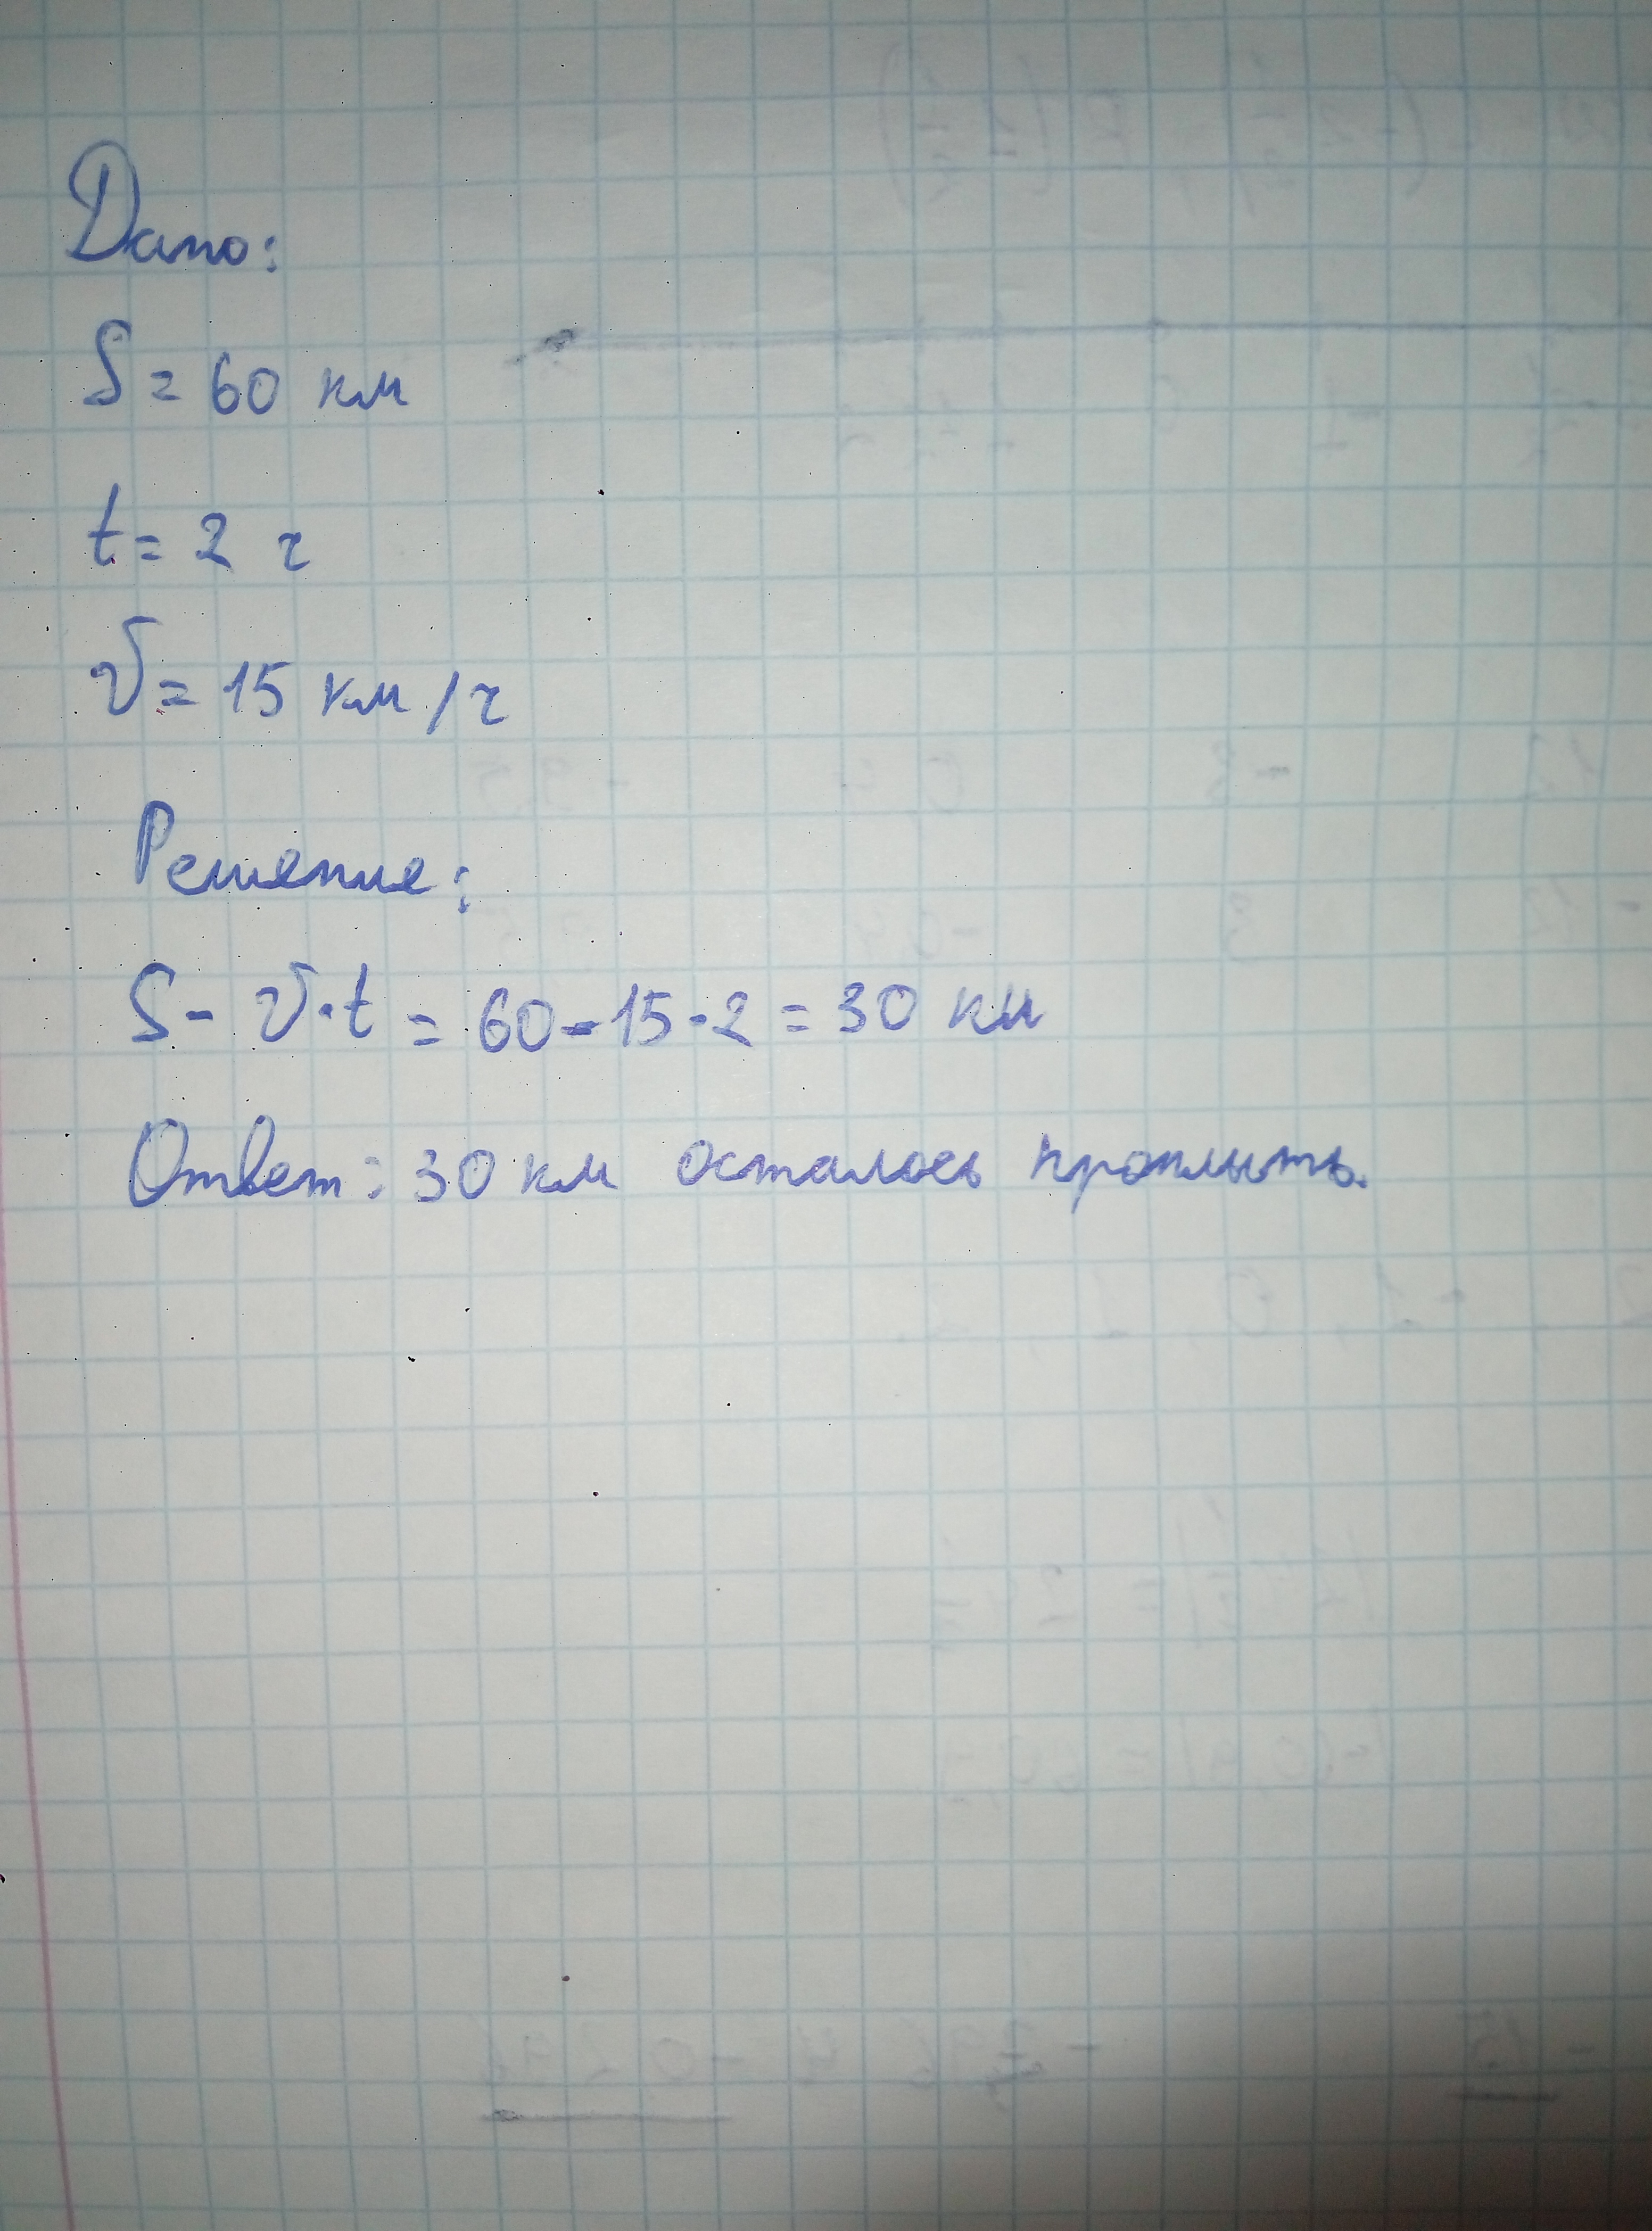 Дано:
S = 60 км
t = 2 ч
v = 15 км/ч
Решение:
S - v·t = 60-15·2 = 30 км
Ответ: 30 км осталось проплыть.